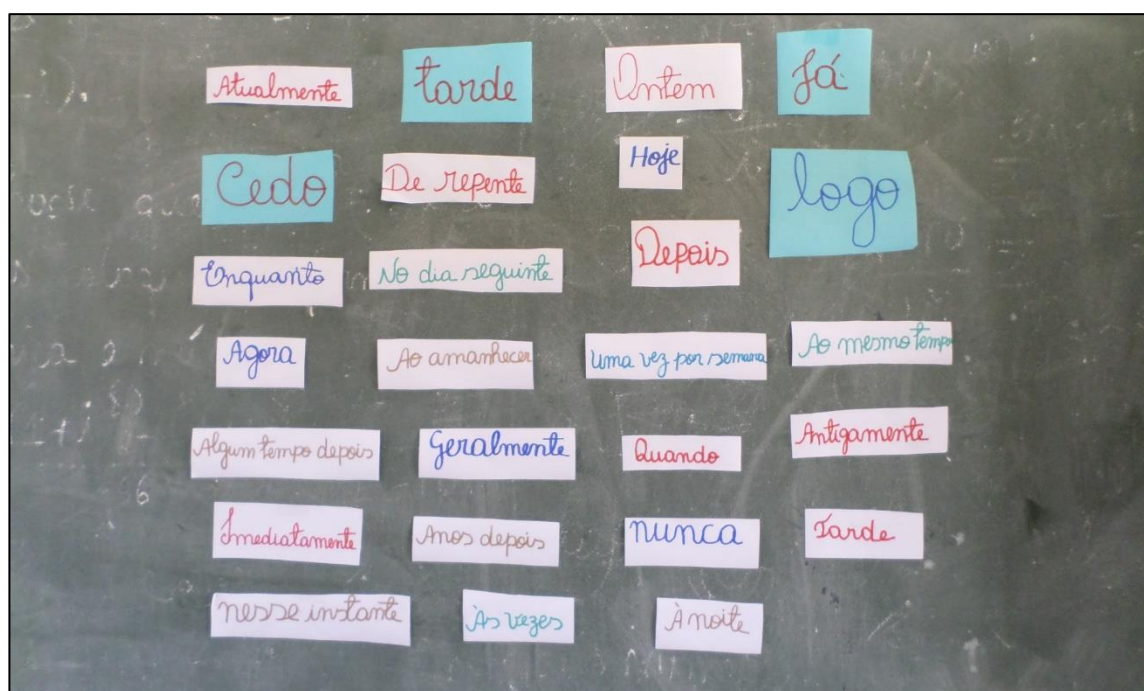 Atualmente
tarde
Ontem
Já
Cedo
De repente
Hoje
logo
Depois
Enquanto
No dia seguinte
Agora
Ao amanhecer
Uma vez por semana
Ao mesmo tempo
Algum tempo depois
Geralmente
Quando
Antigamente
Imediatamente
Anos depois
nunca
Tarde
nesse instante
Às vezes
À noite